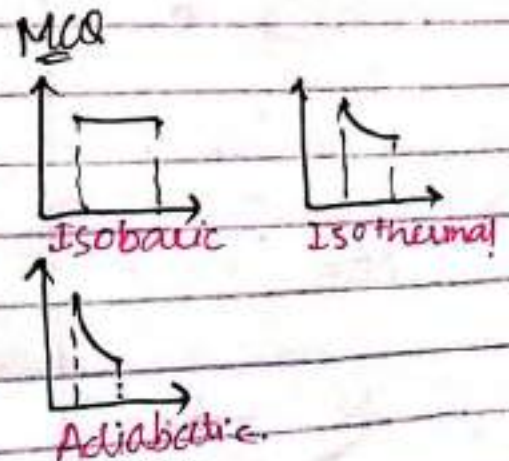 MCQ
Isobaric Isothermal
Adiabatic.